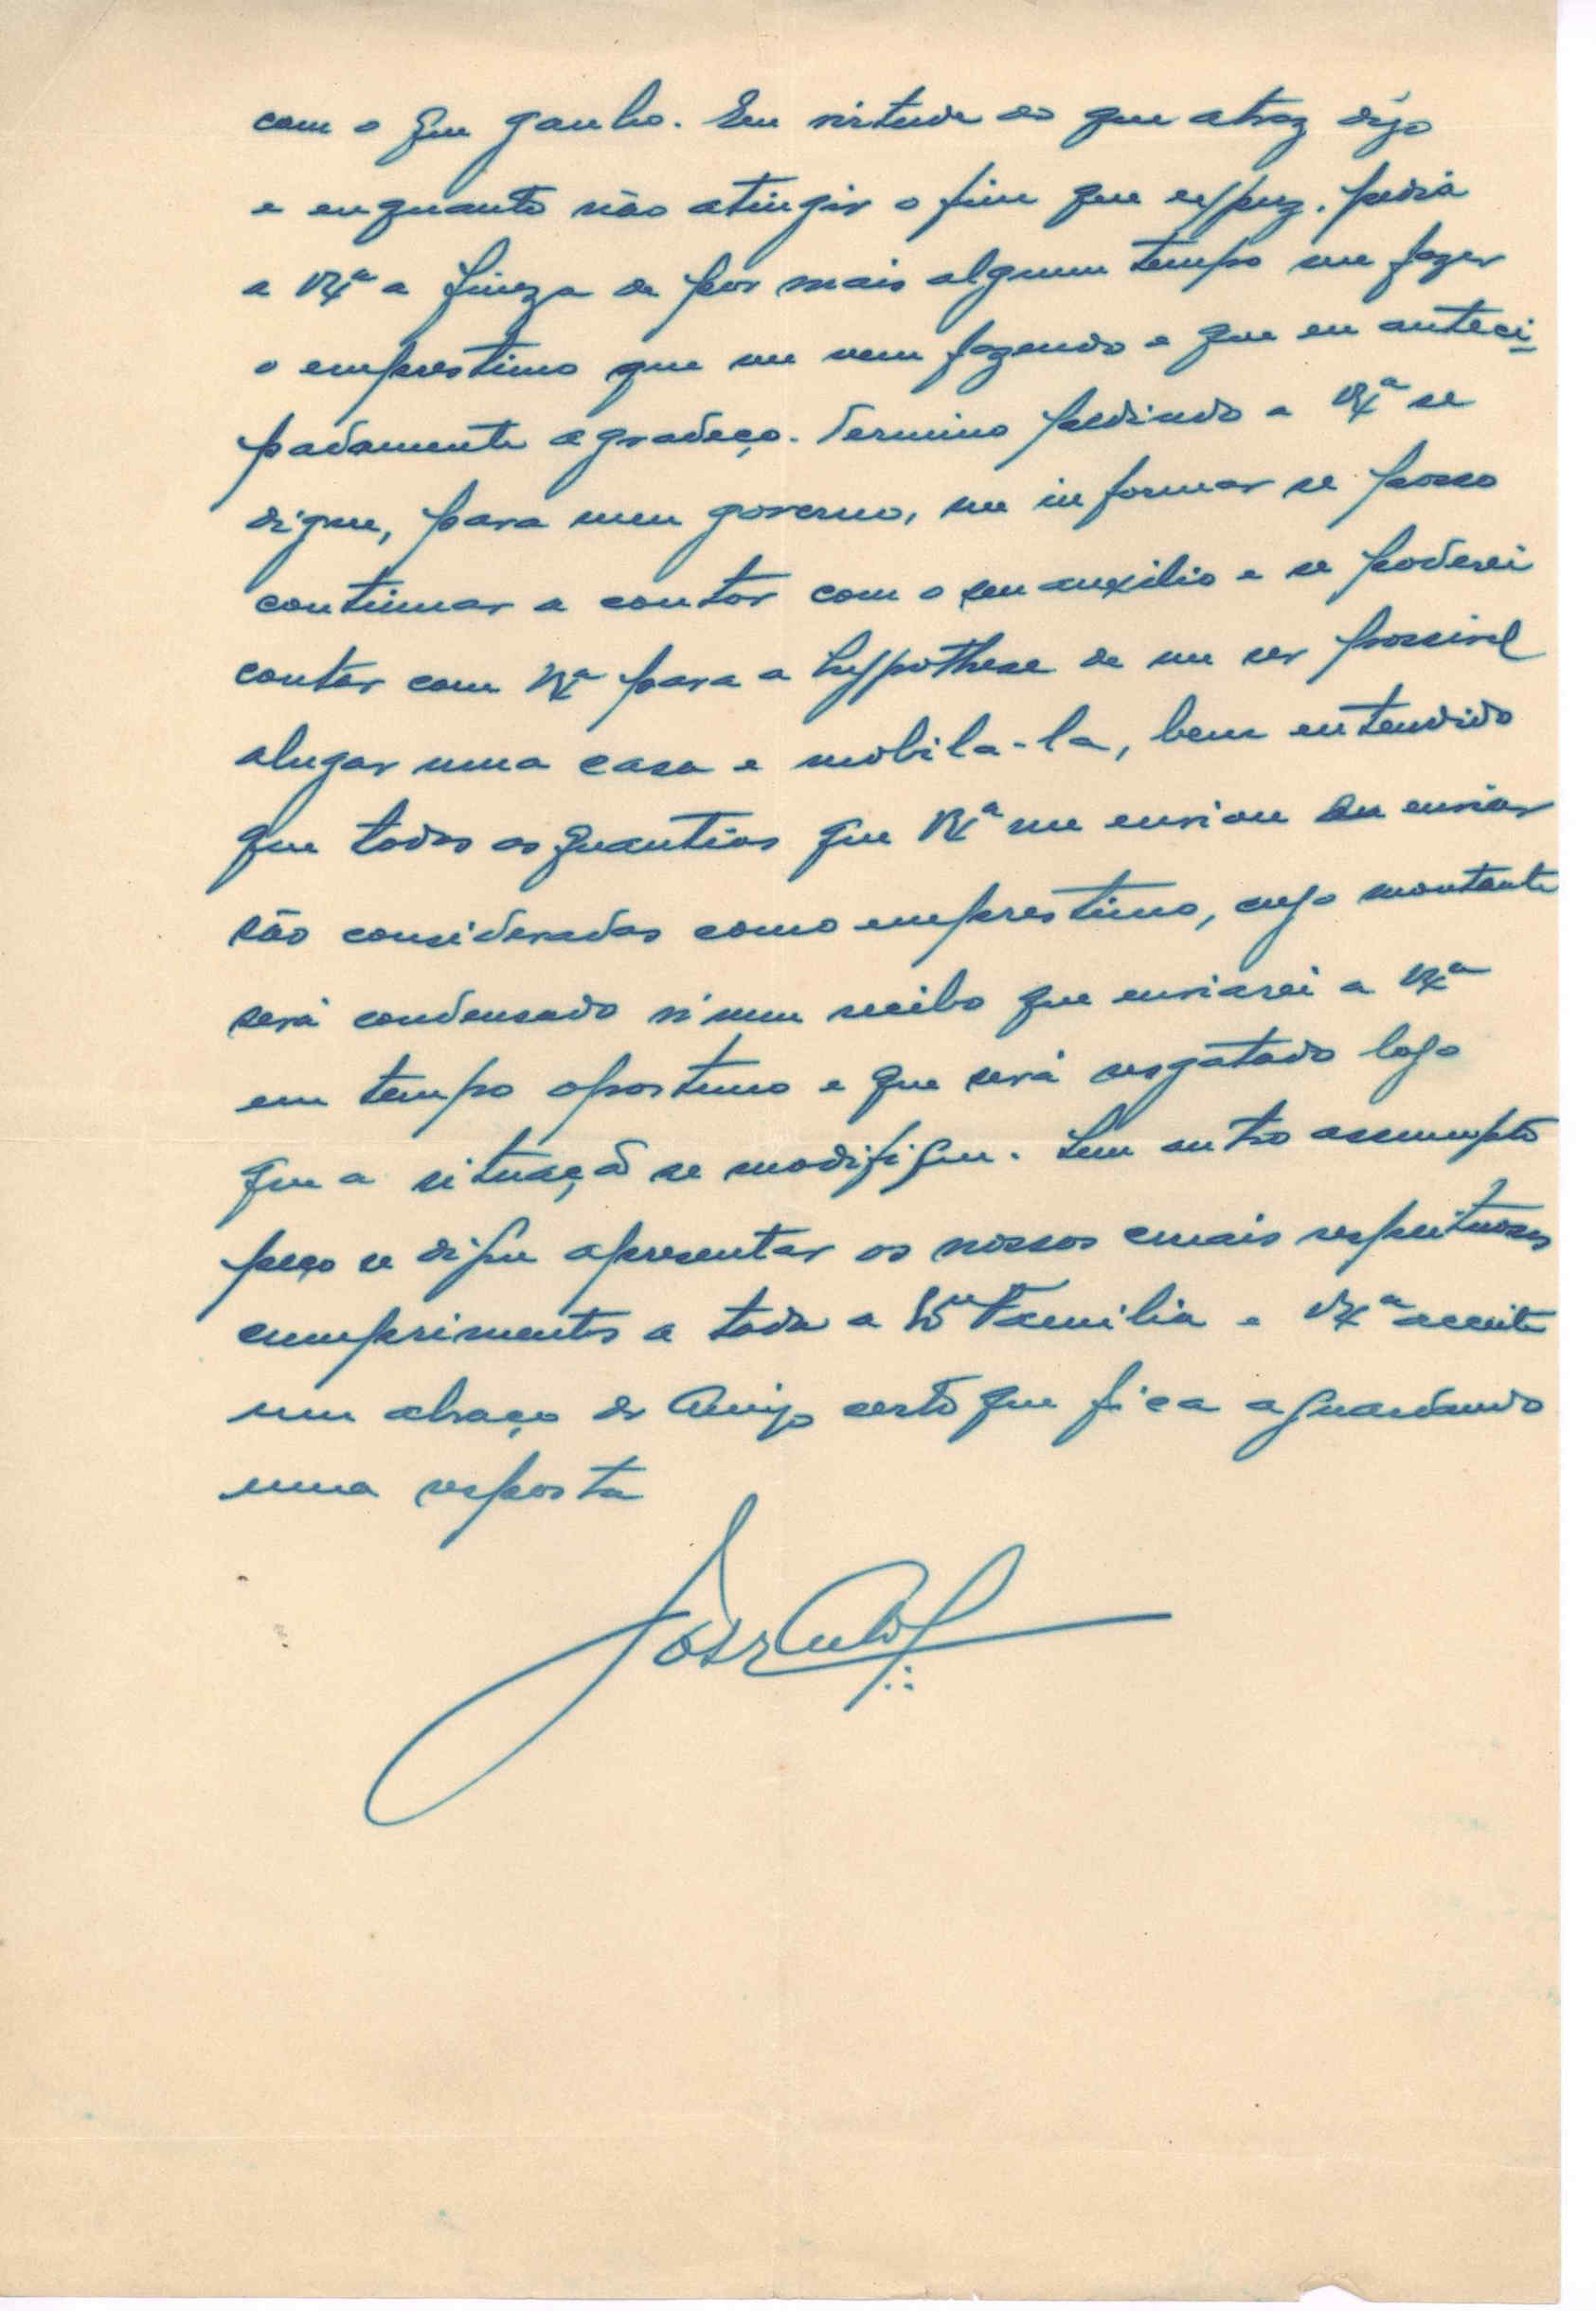 com o que ganho. Em virtude do que atraz digo
e enquanto não atingir o fim que expuz, pedia
a V.Exª a fineza de por mais algum tempo me fazer
o emprestimo que me vem fazendo e que eu anteci-
padamente agradeço. Termino pedindo a V.Exª se
digne, para meu governo, me informar se posso
continuar a contar com o seu auxilio e se poderei
contar com V.Exª para a hypothese de me ser possivel
alugar uma casa e mobila-la, bem entendido
que todas as quantias que V.Exª me enviou ou enviar
são consideradas como emprestimo, cujo montante
será condensado n'um recibo que enviarei a V.Exª
em tempo oportuno e que será resgatado logo
que a situação se modifique. Sem outro assumpto
peço se digne apresentar os nossos mais respeitosos
cumprimentos a toda a Familia e V.Exª acceite
um abraço do Amigo certo que fica aguardando
uma resposta
José